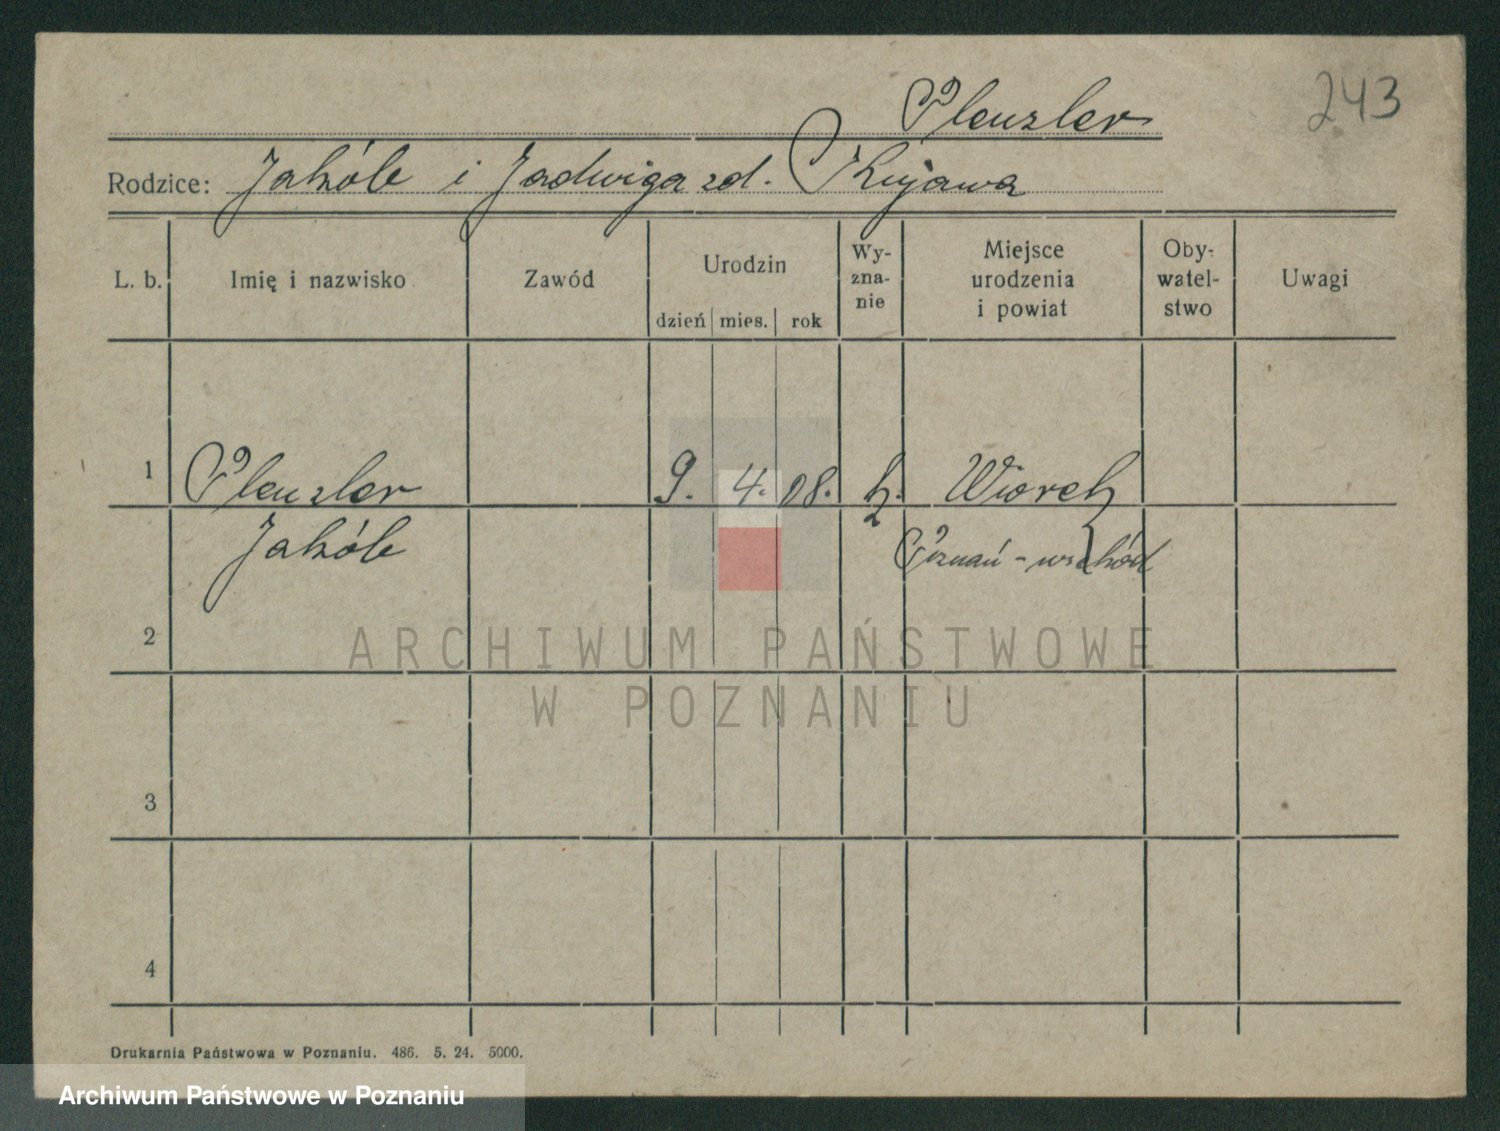 243
Plenzler
Rodzice: Jakób i Jadwiga zd. Kujawa
L. b. Imię i nazwisko Zawód Urodzin dzień mies. rok Wy-zna-nie Miejsce urodzenia i powiat Oby-watel-stwo Uwagi
1 Plenzler 9. 4. 08. k. Wiorek
Jakób Poznań-wschód
2
ARCHIWUM PAŃSTWOWE
W POZNANIU
3
4
Drukarnia Państwowa w Poznaniu. 486. 5. 24. 5000.
Archiwum Państwowe w Poznaniu